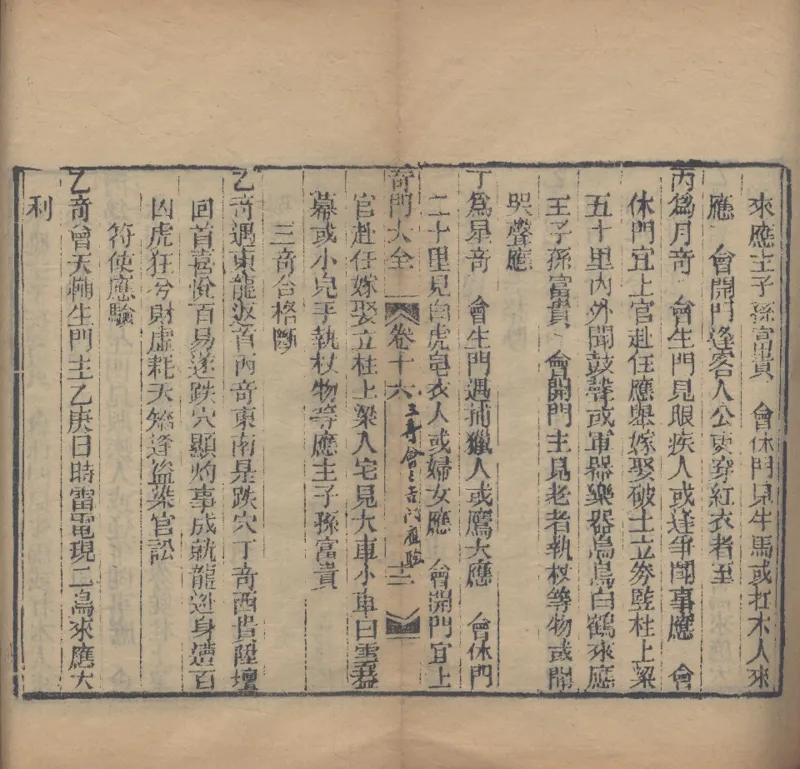 來應主子孫富貴　會休門見牛馬或扛木人來
應　會開門逢客人公吏穿紅衣者至
丙爲月奇　會生門見眼疾人或逢爭鬧事應　會
休門宜上官赴任應舉嫁娶破土立券豎柱上梁
五十里內外聞鼓聲或軍器樂器烏鳥白鶴來應
王子孫富貴　會開門主見老者執杖等物或聞
哭聲應
丁爲星奇　會生門遇捕獵人或鷹犬應　會休門
二十里見白虎皂衣人或婦女應　會開門宜上
奇門大全　卷十六　三奇會三吉門應驗　十二
官赴任嫁娶立柱上梁入宅見大車小車白雲
幕或小兒手執杖物等應主子孫富貴
三奇合格斷
乙奇遇東龍返首丙奇東南是跌穴丁奇西昔陞壇
回首喜悅百易遂跌穴顯灼事成就龍逃身遭百
凶虎狂兮財虛耗天矯逢盜柒官訟
符使應驗
乙奇會天輔生門主乙庚日時雷電現二鳥來應大
利